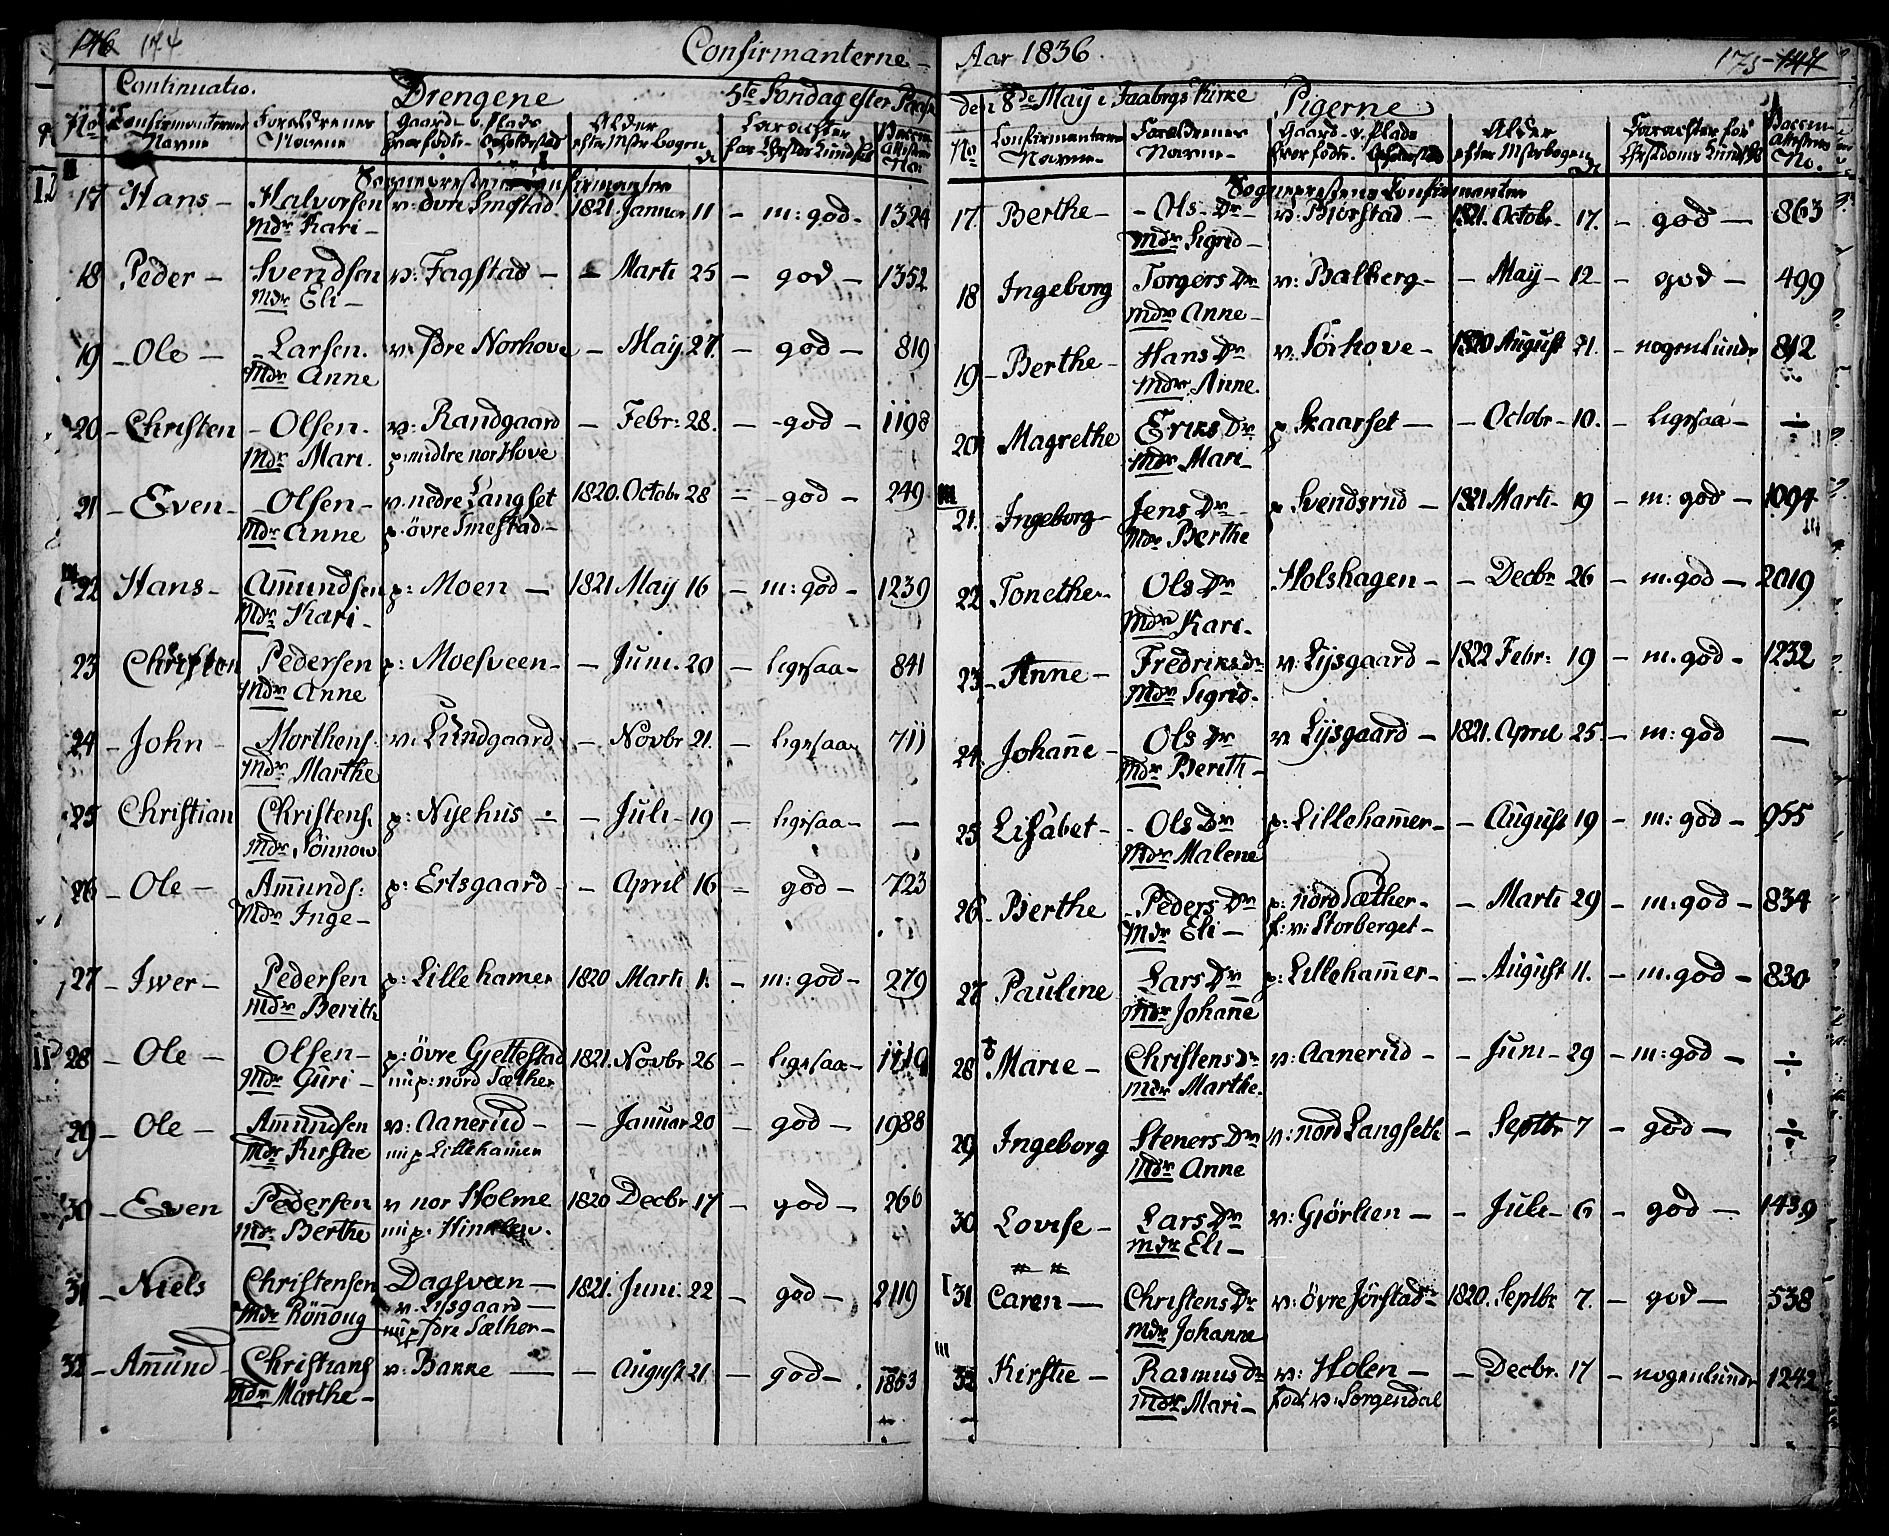 146 174 Confirmanterne
Continuatio. Drengene 5te Søndag efter Paaske
No Confirmanternes Navne Forældrenes Navne Gaard v. Plads hvor fødte Opholdsted Alder efter Mstrbogen Caracter for Chrstds Kundskab Vaccin Attestens No.
Sogneprestens Confirmanter
17 Hans - Halvorsen v: övre Smestad 1821 Januar 11 - m: god - 1324
Mdr Kari -
18 Peder - Svendsen v: Fagstad - - Marti 25 - god - 1352
Mdr Eli -
19 - Ole - Larsen. v: sdre Norhove - May 27 - god - 819
Mdr Anne
20 - Christen - Olsen. v: Randgaard - Febr: 28. - god - 1198
Mdr Mari. p: midtre nor Hove
21 - Even - Olsen - v. nedre Langset 1820. Octobr 28 - god - 249
Mdr Anne p. övre Smestad -
22 Hans - Amundsen p: Moen - 1821 May 16 - m: god - 1239
Mdr Kari -
23 Christen Pedersen p: Moesveen - - Juni. 20 - ligesaa - 841
Mdr Anne
24 - John - Morthens. v. Lundgaard - Novbr 21. - ligesaa 711
Mdr Marthe
25 Christian Christens. p: Nyehus - - Juli - 19 - ligesaa - -
Mdr Sönnow
26 - Ole - Amunds: p: Ertsgaard - - April 16 - god - 723
Mdr Inge -
27 - Iwer - Pedersen p: Lillehamer 1820 Marti 1. - m: god - 279
Mdr Berith
28 - Ole - Olsen - p: övre Gjettestad 1821. Novbr 26 - ligesaa - 1119
Mdr Guri - nu p: nord Sæther
29 - Ole - Amundsen v: Aanerud - - Januar 20 - god - 1988
Mdr Kirstie nu p Lillehamer
30 - Even Pedersen v nor Holme 1820 Decbr 17 - god - 266
Mdr Berthe nu p:
31 - Niels Christensen Dagsveen - 1821. Juni. 22 - god - 2119
Mdr Rönnoug v. Lysgaard -
nu p sdre Sæther -
32 - Amund - Christians v: Banke - - August 21. - god - 1853
Mdr Marthe -
Aar 1836. 175 147
den 8de May i Faabergs Kirke Pigerne
No Confirmanternes Navne - Forældrenes Navne - Gaard v. Plads hvor fødte. Opholdsted Alder efter Mstrbogen Caracter for Chrstdoms Kundskb Vaccin Attestens No.
Sogneprestens Confirmanter
17. Berthe - - Ols - Dr - v: Bjørstad - 1821. Octobr - 17. - god - 863
Mdr Sigrid -
18 Ingeborg Torgers Dr v: Balberg - - May - 12 - god - 499
Mdr Anne -
19 - Berthe - Hans Dr v: Sörhove - 1820 August 21. - nogenlunde 812
Mdr Anne.
20 Magrethe Eriks Dr p Skaarset - - Octobr - 10. - ligesaa - ÷
Mdr Mari -
21. Ingeborg - Jens Dr p Svendsrud - 1821. Marti - 19 - m: god - 1094
Mdr Berthe
22 Tonethe - Ols Dr Holshagen - - Decbr 26 - m. god - 2019
Mdr Kari -
23 - Anne - Fredriks Dr v: Lysgaard - 1822 Febr: 19 - m. god - 1232
Mdr Sigrid.
24. Johane - Ols Dr v: Lysgaard - 1821. April 25. - m: god -
Mdr Berith -
25 Lisabet - - Ols Dr p: Lillehamer - - August 19 - m: god - 955
Mdr Malene
26 - Berthe - Peders Dr p: nord Sæther - - Marti 29 - m: god - 834
Mdr Eli - f: v: Storberget -
27 Pauline Lars Dr p: Lillehamer - - August 11. - m. god - 830
Mdr Johane
28 Marie - Christens Dr v: Aanerud - - Juni - 29 - m: god - ÷
Mdr Marthe.
29 Ingeborg Steners Dr v: nord Langseth - Septbr 7 - god - ÷
Mdr Anne
30 Lovise - Lars Dr v: Gjörlien - - Juli - 6 - god - 1439
Mdr Eli -
31 Caren - Christens Dr v: övre Jörstad - 1820. Septbr 7. - god - 538
Mdr Johanne
32 Kirstie - Rasmus Dr v: Holen - - Decbr. 17 - nogenlunde 1242
Mdr Mari - født v: Sorgendal